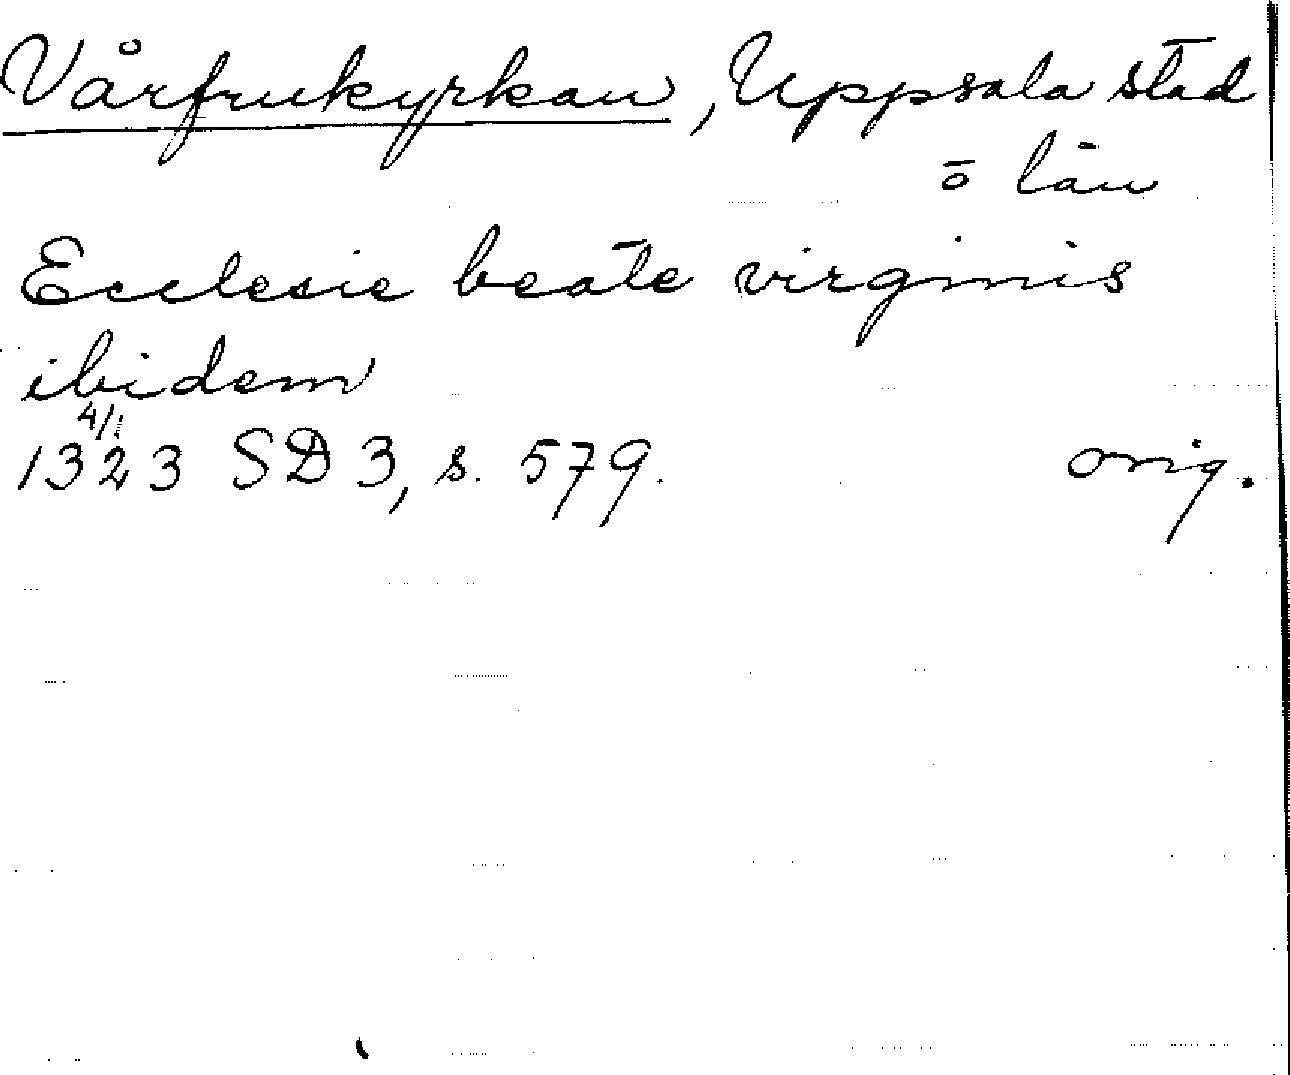 Vårfrukyrkan, Uppsala stad
o län
Ecclesie beate virginis
ibidem
4/1
1323 SD 3, s. 579. orig.